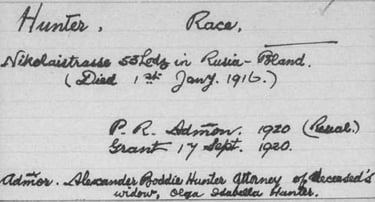 Hunter, Race.
Nikolaistrasse 53 Lodz in Rusia - Poland.
(Died 1st Jany. 1916.)
P. R. Admon. 1920 (Reseal.)
Grant 17 Sept. 1920.
Admor. Alexander Boddie Hunter Attorney of deceased's
widow, Olga Isabella Hunter.